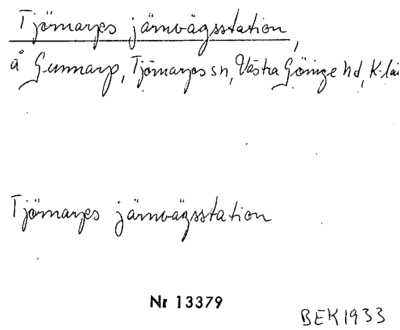 Tjörnarps järnvägsstation,
å Gunnarp, Tjörnarps sn, Västra Göinge hd, K-lä
Tjörnarps järnvägsstation
Nr 13379
BEK 1933